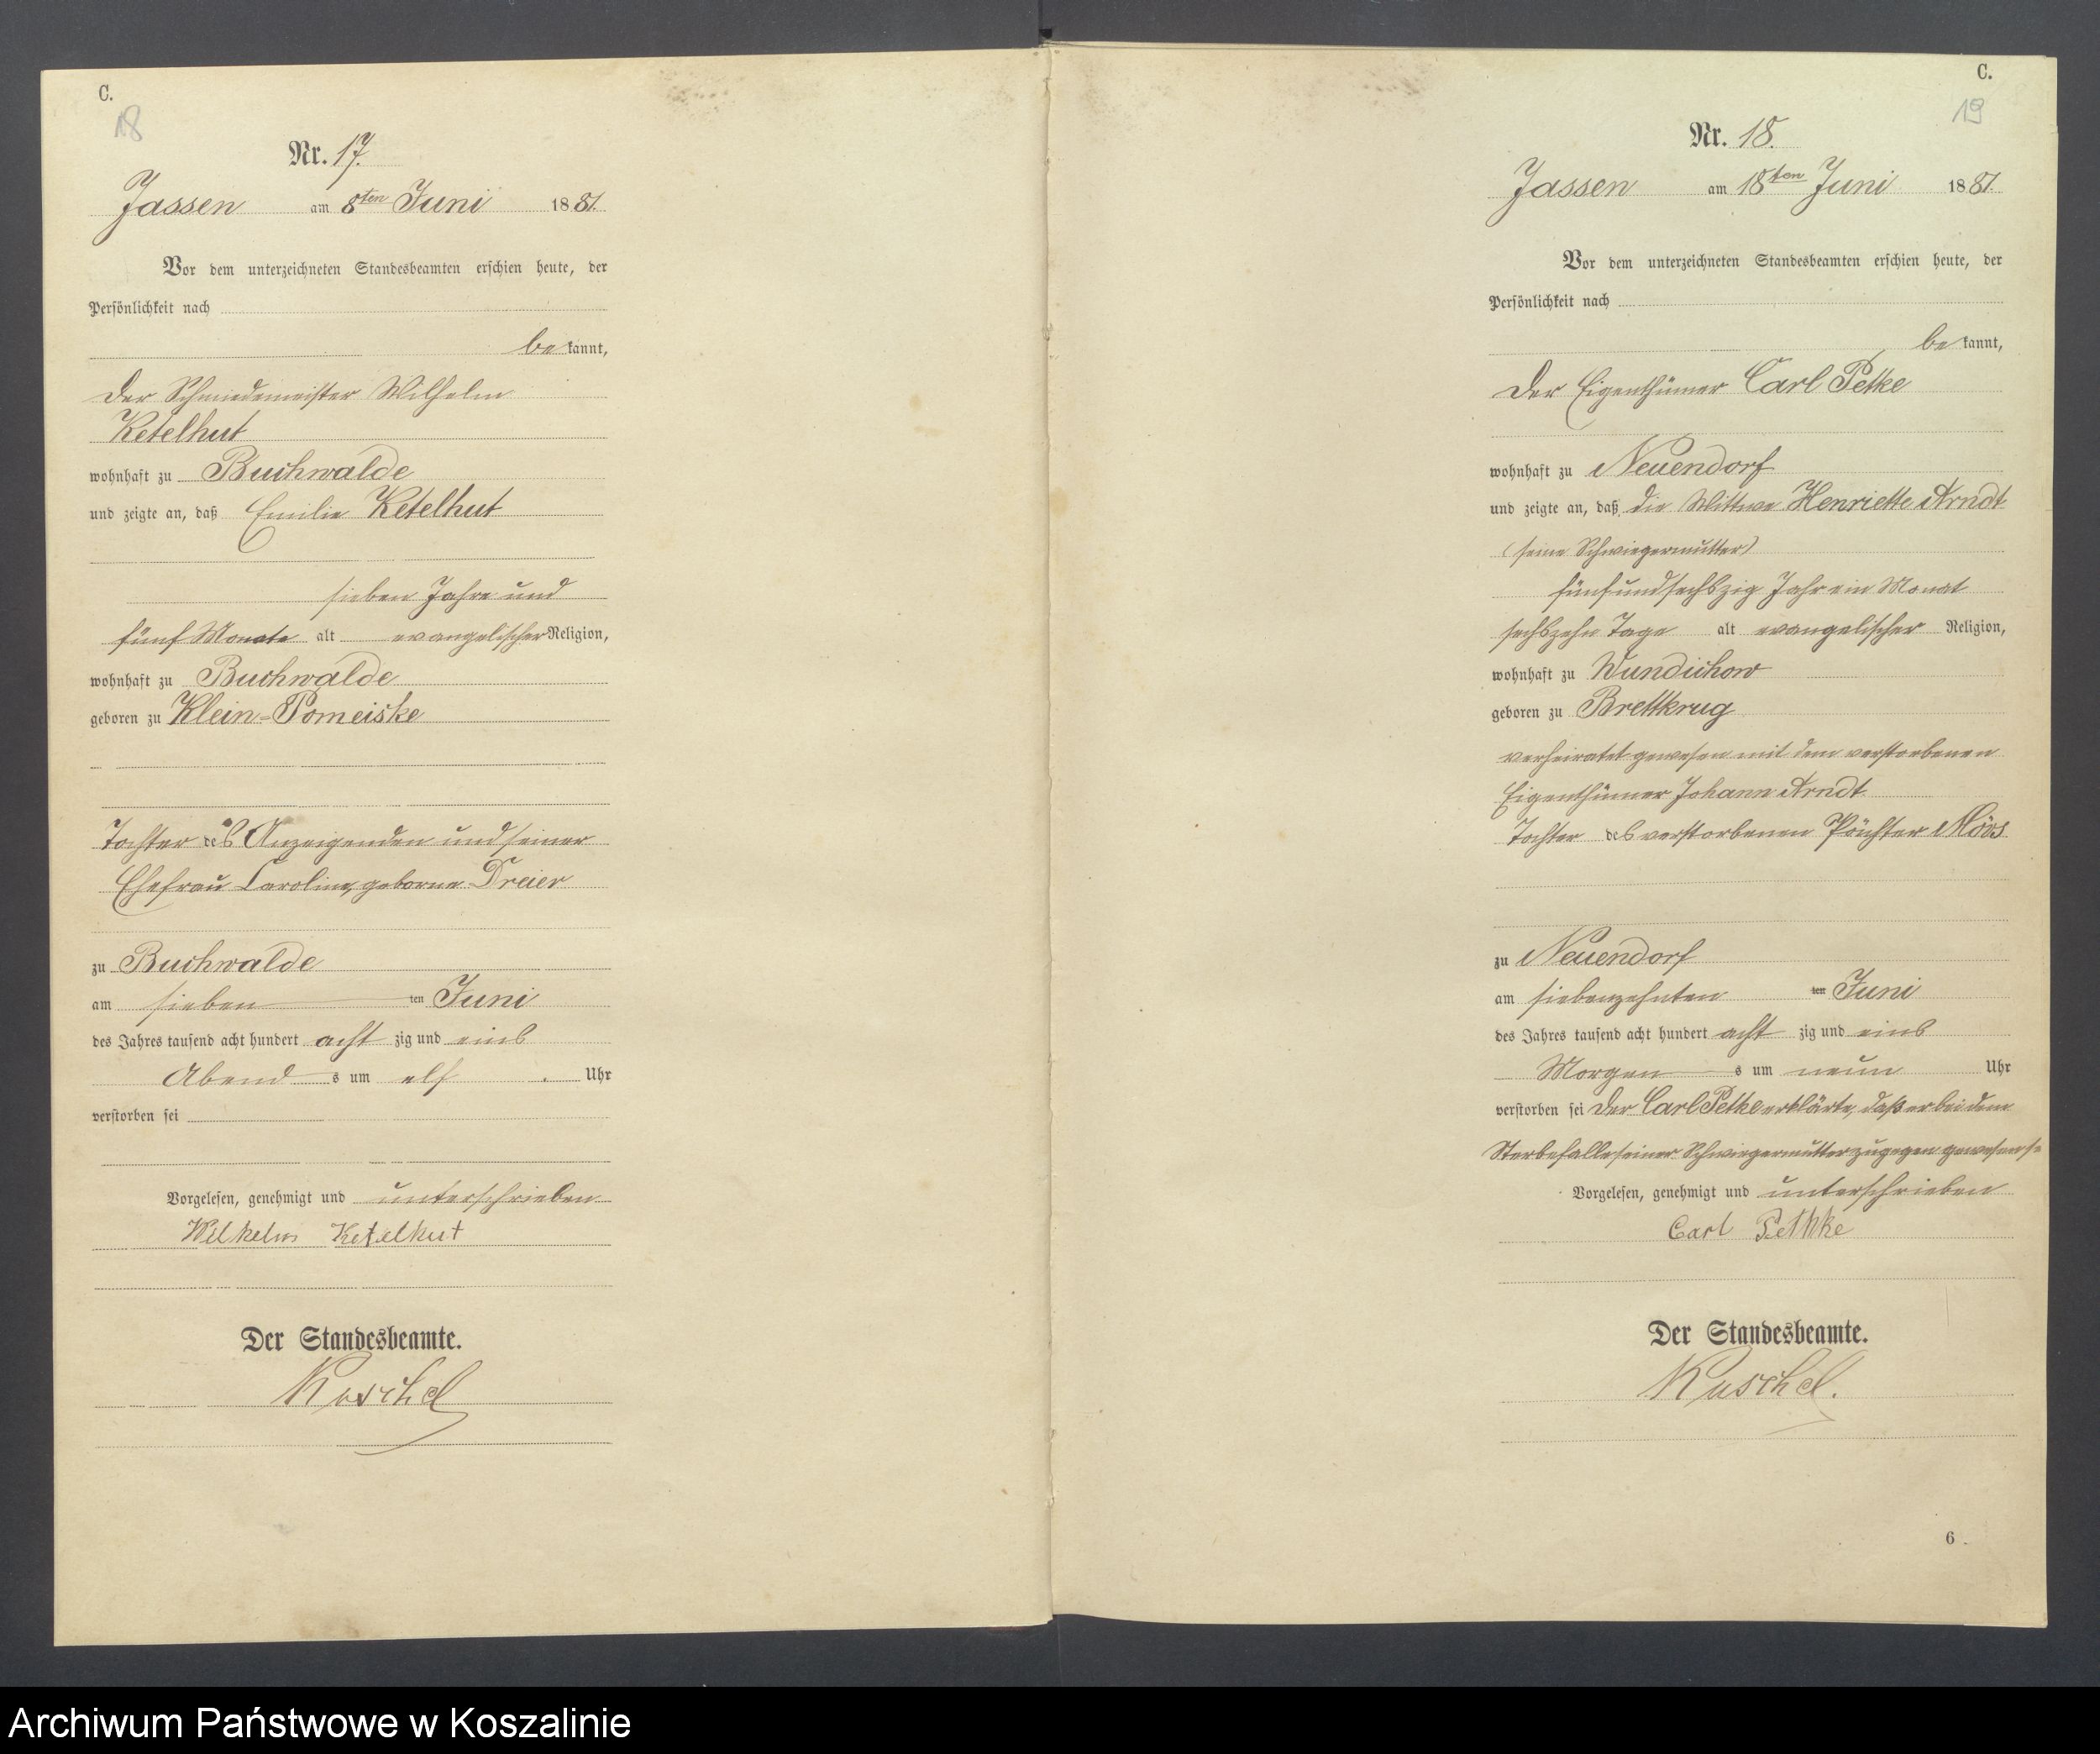 C.
18
Nr. 17.
Jassen am 8ten Juni 1881.
Vor dem unterzeichneten Standesbeamten erschien heute, der
Persönlichkeit nach
be kannt,
der Schmiedemeister Wilhelm
Ketelhut
wohnhaft zu Buchwalde
und zeigte an, daß Emilie Ketelhut
sieben Jahre und
fünf Monate alt evangelischer Religion,
wohnhaft zu Buchwalde
geboren zu Klein-Pomeiske
Tochter des Anzeigenden und seiner
Ehefrau Caroline, geborne Dreier
zu Buchwalde
am sieben ten Juni
des Jahres tausend acht hundert acht zig und eins
Abend s um elf Uhr
verstorben sei
Vorgelesen, genehmigt und unterschrieben
Wilhelm Ketelhut
Der Standesbeamte.
Kuschel
C.
19
Nr. 18.
Jassen am 18ten Juni 1881.
Vor dem unterzeichneten Standesbeamten erschien heute, der
Persönlichkeit nach
be kannt,
der Eigenthümer Carl Petke
wohnhaft zu Neuendorf
und zeigte an, daß die Wittwe Henriette Arndt
(seine Schwiegermutter)
fünfundsechszig Jahr ein Monat
sechszehn Tage alt evangelischer Religion,
wohnhaft zu Wundichow
geboren zu Brettkrug
verheiratet gewesen mit dem verstorbenen
Eigenthümer Johann Arndt
Tochter des verstorbenen Pächter
zu Neuendorf
am siebenzehnten ten Juni
des Jahres tausend acht hundert acht zig und eins
Morgen s um neun Uhr
verstorben sei der Carl Petke erklärte, daß er bei dem
Sterbefalle seiner Schwiegermutter zugegen gewesen
Vorgelesen, genehmigt und unterschrieben
Carl Pethke
Der Standesbeamte.
Kuschel.
6
Archiwum Państwowe w Koszalinie